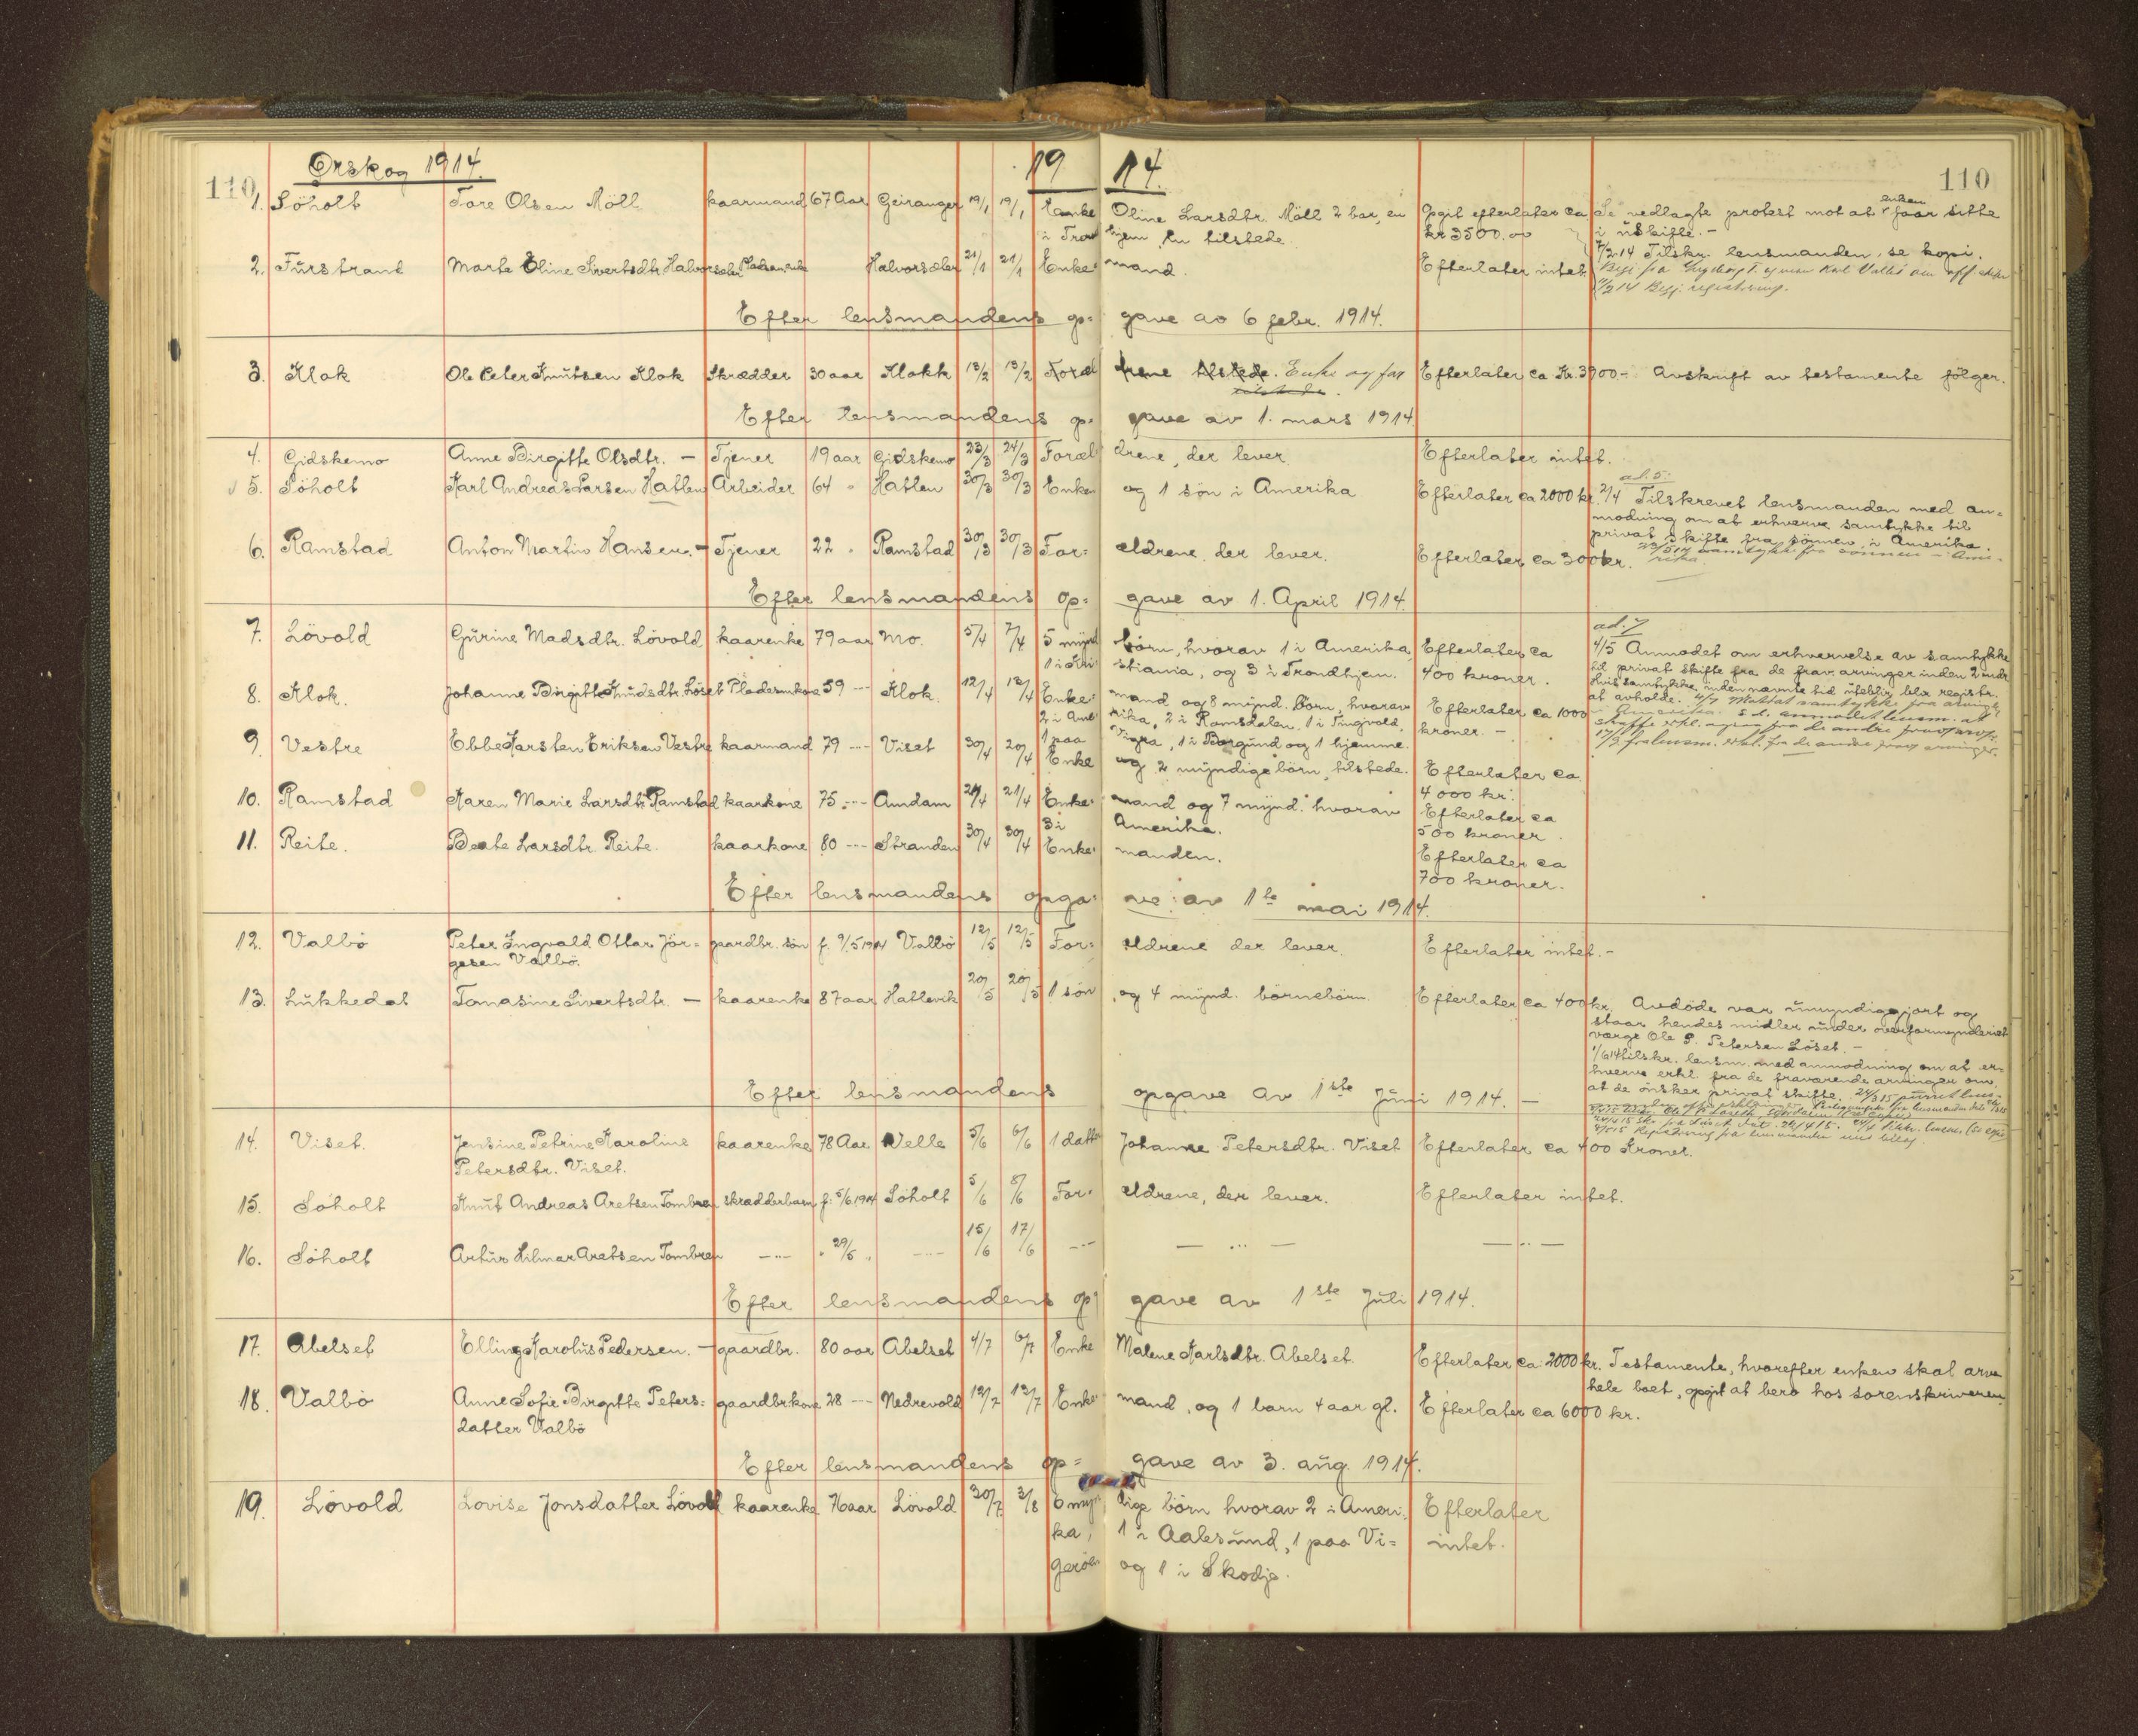 Ørskog 1914.
19 14.
110
110
1. Söholt Tore Olsen Möll kaarmand 67 Aar Geiranger 19/1 19/1 Enke Oline Larsdtr. Möll 2 bar, en Opgit efterlater ca Se vedlagte protest mot at enken faar sitte
i Trondhjem, En tilstede. kr 3500.00 i uskifte. -
7/2.14 Tilskr. lensmanden, se kopi.
2. Fürstrand Marte Eline Sivertsdtr. Halvorsælen Halvorsælen 21/1 21/1 Enkemand. Efterlater intet.
11/2 14 Begj. registrering.
Efter lensmandens opgave av 6 febr. 1914.
3. Klok Ole Peter Knutsen Klok Skrædder 30 aar Klokk 13/2 13/2 Forældrene tilstede. Enke og far Efterlater ca Kr. 3900- Avskrift av testamente fölger.
tilstede.
Efter lensmandens opgave av 1. mars 1914.
4. Gidskemo Anne Birgitte Olsdtr. - Tjener 19 aar Gidskemo 23/3 24/3 Forældrene, der lever. Efterlater intet.
ad. 5:
5. Söholt Karl Andreas Larsen Hatlen Arbeider 64 " Hatlen 30/3 30/3 Enken og 1 sön i Amerika Efterlater ca 2000 kr. 2/4 Tilskrevet lensmanden med an=
modning om at erhverve samtykke til
privat skifte fra sönnen i Amerika.
6. Ramstad Anton Martin Hansen. - Tjener 22 " Ramstad 30/3 30/3 For=ældrene der lever. Efterlater ca 300 kr.
23/5 14 samtykke fra sönnen i Ame-
rika.
Efter lensmandens op=gave av 1. April 1914.
ad. 7
7. Lövold Gürine Madsdtr. Lövold kaarenke 79 aar Mo. 5/4 7/4 5 mynd börn, hvorav 1 i Amerika, Efterlater ca 4/5 Anmodet om erhvervelse av samtykke
1 i Kristiania, og 3 i Trondhjem. 400 kroner. til privat skifte fra de frav. arvinger inden 2 mdr.
Hvis samtykke inden nævnte tid uteblir, blir registr.
at avholde.
8. Klok. Johanne Birgitte Knudsdtr. Löset Pladsemkone 59 -"- Klok. 12/4 13/4 Enke=mand og 8 mynd. börn, hvorav Efterlater ca 1000
2 i Amerika, 2 i Romsdalen, 1 i Tingvold, kroner. -
1 paa Vigra, 1 i Borgund og 1 hjemme.
9. Vestre Ebbe Karsten Eriksen Vestre kaarmand 79 -"- Viset 30/4 20/4 Enke og 2 myndige börn, tilstede. Efterlater ca
4000 kr.
10. Ramstad Karen Marie Larsdtr. Ramstad kaarkone 75 -"- Amdam 21/4 21/4 Enke=mand og 7 mynd. hvorav Efterlater ca
3 i Amerika. 500 kroner.
11. Reite. Beate Larsdtr. Reite. kaarkone 80 -"- Stranden 30/4 30/4 Enke=manden. Efterlater ca
700 kroner.
Efter lensmandens opga=ve av 1te mai 1914.
12. Valbö Peter Ingvald Ottar Jör= gaardbr. sön f. 9/5 1914 Valbö 12/5 12/5 For=ældrene der lever. Efterlater intet. -
gesen Valbö.
13. Lükkedal Tomasine Sivertsdtr. - kaarenke 87 aar Hatlevik 20/5 20/5 1 sön, og 4 mynd. börnebörn. Efterlater ca 400 kr. Avdöde var ümyndiggjort og
staar hendes midler ünder overformynderiet
værge Ole P. Petersen Löset. -
1/6 14 tilskr. lensm. med anmodning om at er=
hverve erkl. fra de fraværende arvinger om,
at de önsker privat skifte.
Efter lensmandens opgave av 1ste Jüni 1914. -
14. Viset. Jensine Petrine Karoline kaarenke 78 Aar Velle 5/6 6/6 1 datter Johanne Petersdtr. Viset Efterlater ca 400 Kroner.
Petersdtr. Viset.
15. Söholt Knut Andreas Aretsen Tombren skrædderbarn f. 5/6 1914 Söholt 5/6 8/6 For=ældrene, der lever. Efterlater intet.
16. Söholt Artür Hilmar Aretsen Tombren -"- " 29/5 " -"- 15/6 17/6 -"- -"- -"-
Efter lensmandens opgave av 1ste Jüli 1914.
17. Abelset Elling Karolüs Pedersen. - gaardbr. 80 aar Abelset 4/7 6/7 Enke Malene Karlsdtr. Abelset. Efterlater ca 2000 kr. Testamente, hvorefter enken skal arve
hele boet, opgit at bero hos sorenskriveren.
18. Valbö Anne Sofie Birgitte Peters= gaardbrkone 28 -"- Nedrevold 12/7 13/7 Enke=mand, og 1 barn 4 aar gl. Efterlater ca 6000 kr.
datter Valbö
Efter lensmandens op=gave av 3. aüg. 1914.
19. Lövold Lovise Jonsdatter Lövold kaarenke 76 aar Lövold 30/7 3/8 6 myndige börn hvorav 2 i Ameri= Efterlater
ka, 1 i Aalesünd, 1 paa Vi= intet.
geröen og 1 i Skodje.